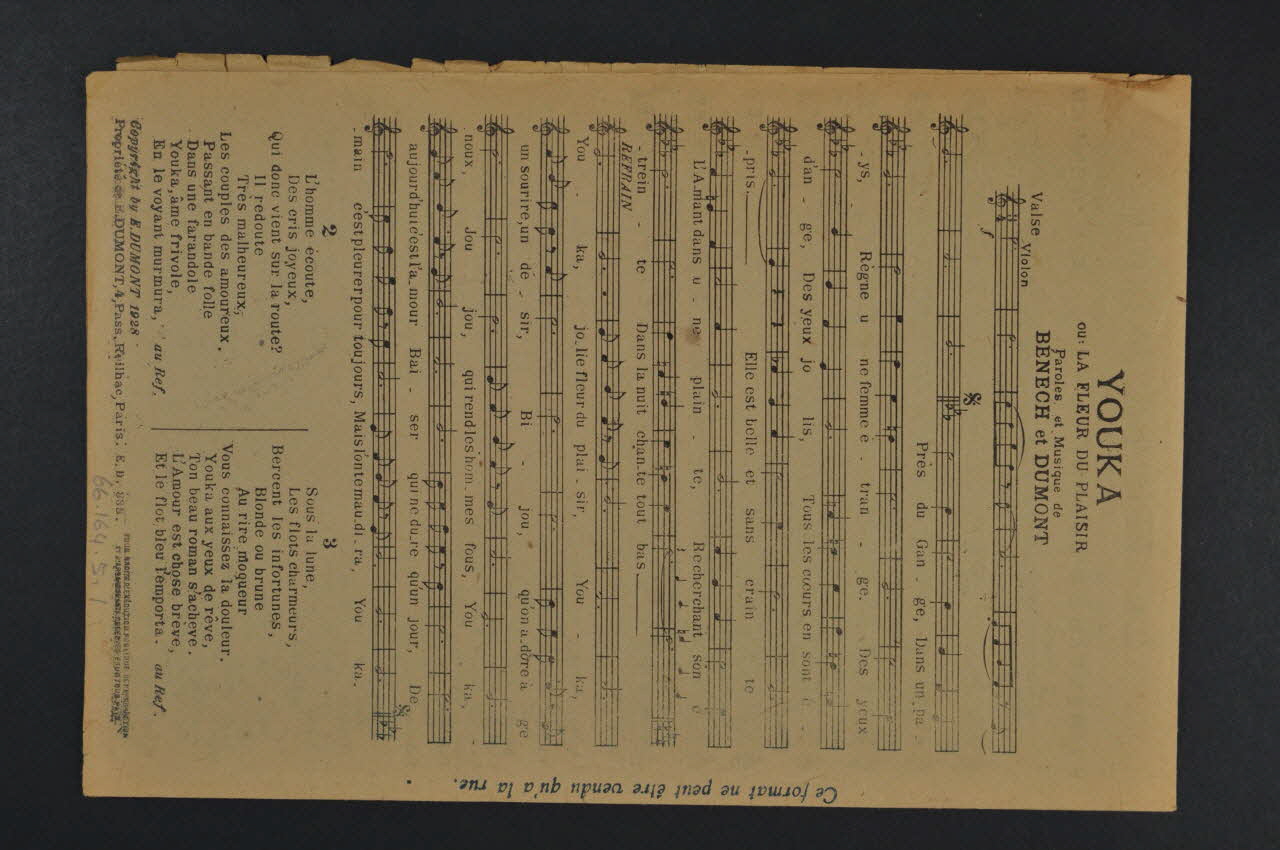 YOUKA
ou: LA FLEUR DU PLAISIR
Paroles et Musique de
BENECH et DUMONT
Valse Violon
f
Près du Gan - ge, Dans un pa -
- ys, Règne u ne femme e - tran - ge. Des yeux
d'an - ge, Des yeux jo lis, Tous les cœurs en sont é -
- pris. Elle est belle et sans crain te
L'Amant dans u - ne plain - te, Recherchant son é
- trein - te Dans la nuit chan-te tout bas
REFRAIN
You - ka, jo-lie fleur du plai - sir, You - ka,
un sourire, un dé - sir, Bi - jou, qu'on a-dore à ge
noux, Jou jou, qui rend les hom-mes fous, You ka,
aujourd'hui c'est l'a-mour Bai - ser qui ne du-re qu'un jour, De
- main c'est pleurer pour toujours, Mais l'on te mau-di-ra, You ka.
2
L'homme écoute,
Des cris joyeux,
Qui donc vient sur la route?
Il redoute
Très malheureux,
Les couples des amoureux.
Passant en bande folle
Dans une farandole
Youka, âme frivole,
En le voyant murmura, au Ref.
3
Sous la lune,
Les flots charmeurs,
Bercent les infortunes,
Blonde ou brune
Au rire moqueur
Vous connaissez la douleur.
Youka aux yeux de rêve,
Ton beau roman s'achève.
L'Amour est chose brève,
Et le flot bleu l'emporta. au Ref.
Copyright by E. DUMONT 1928
Propriété de E. DUMONT, 4, Pass. Ruilhac, Paris. E.D.
POUR DROITS D'EXÉCUTION PUBLIQUE DE REPRODUCTION
66.164.5.1
Ce format ne peut être vendu qu'à la rue.